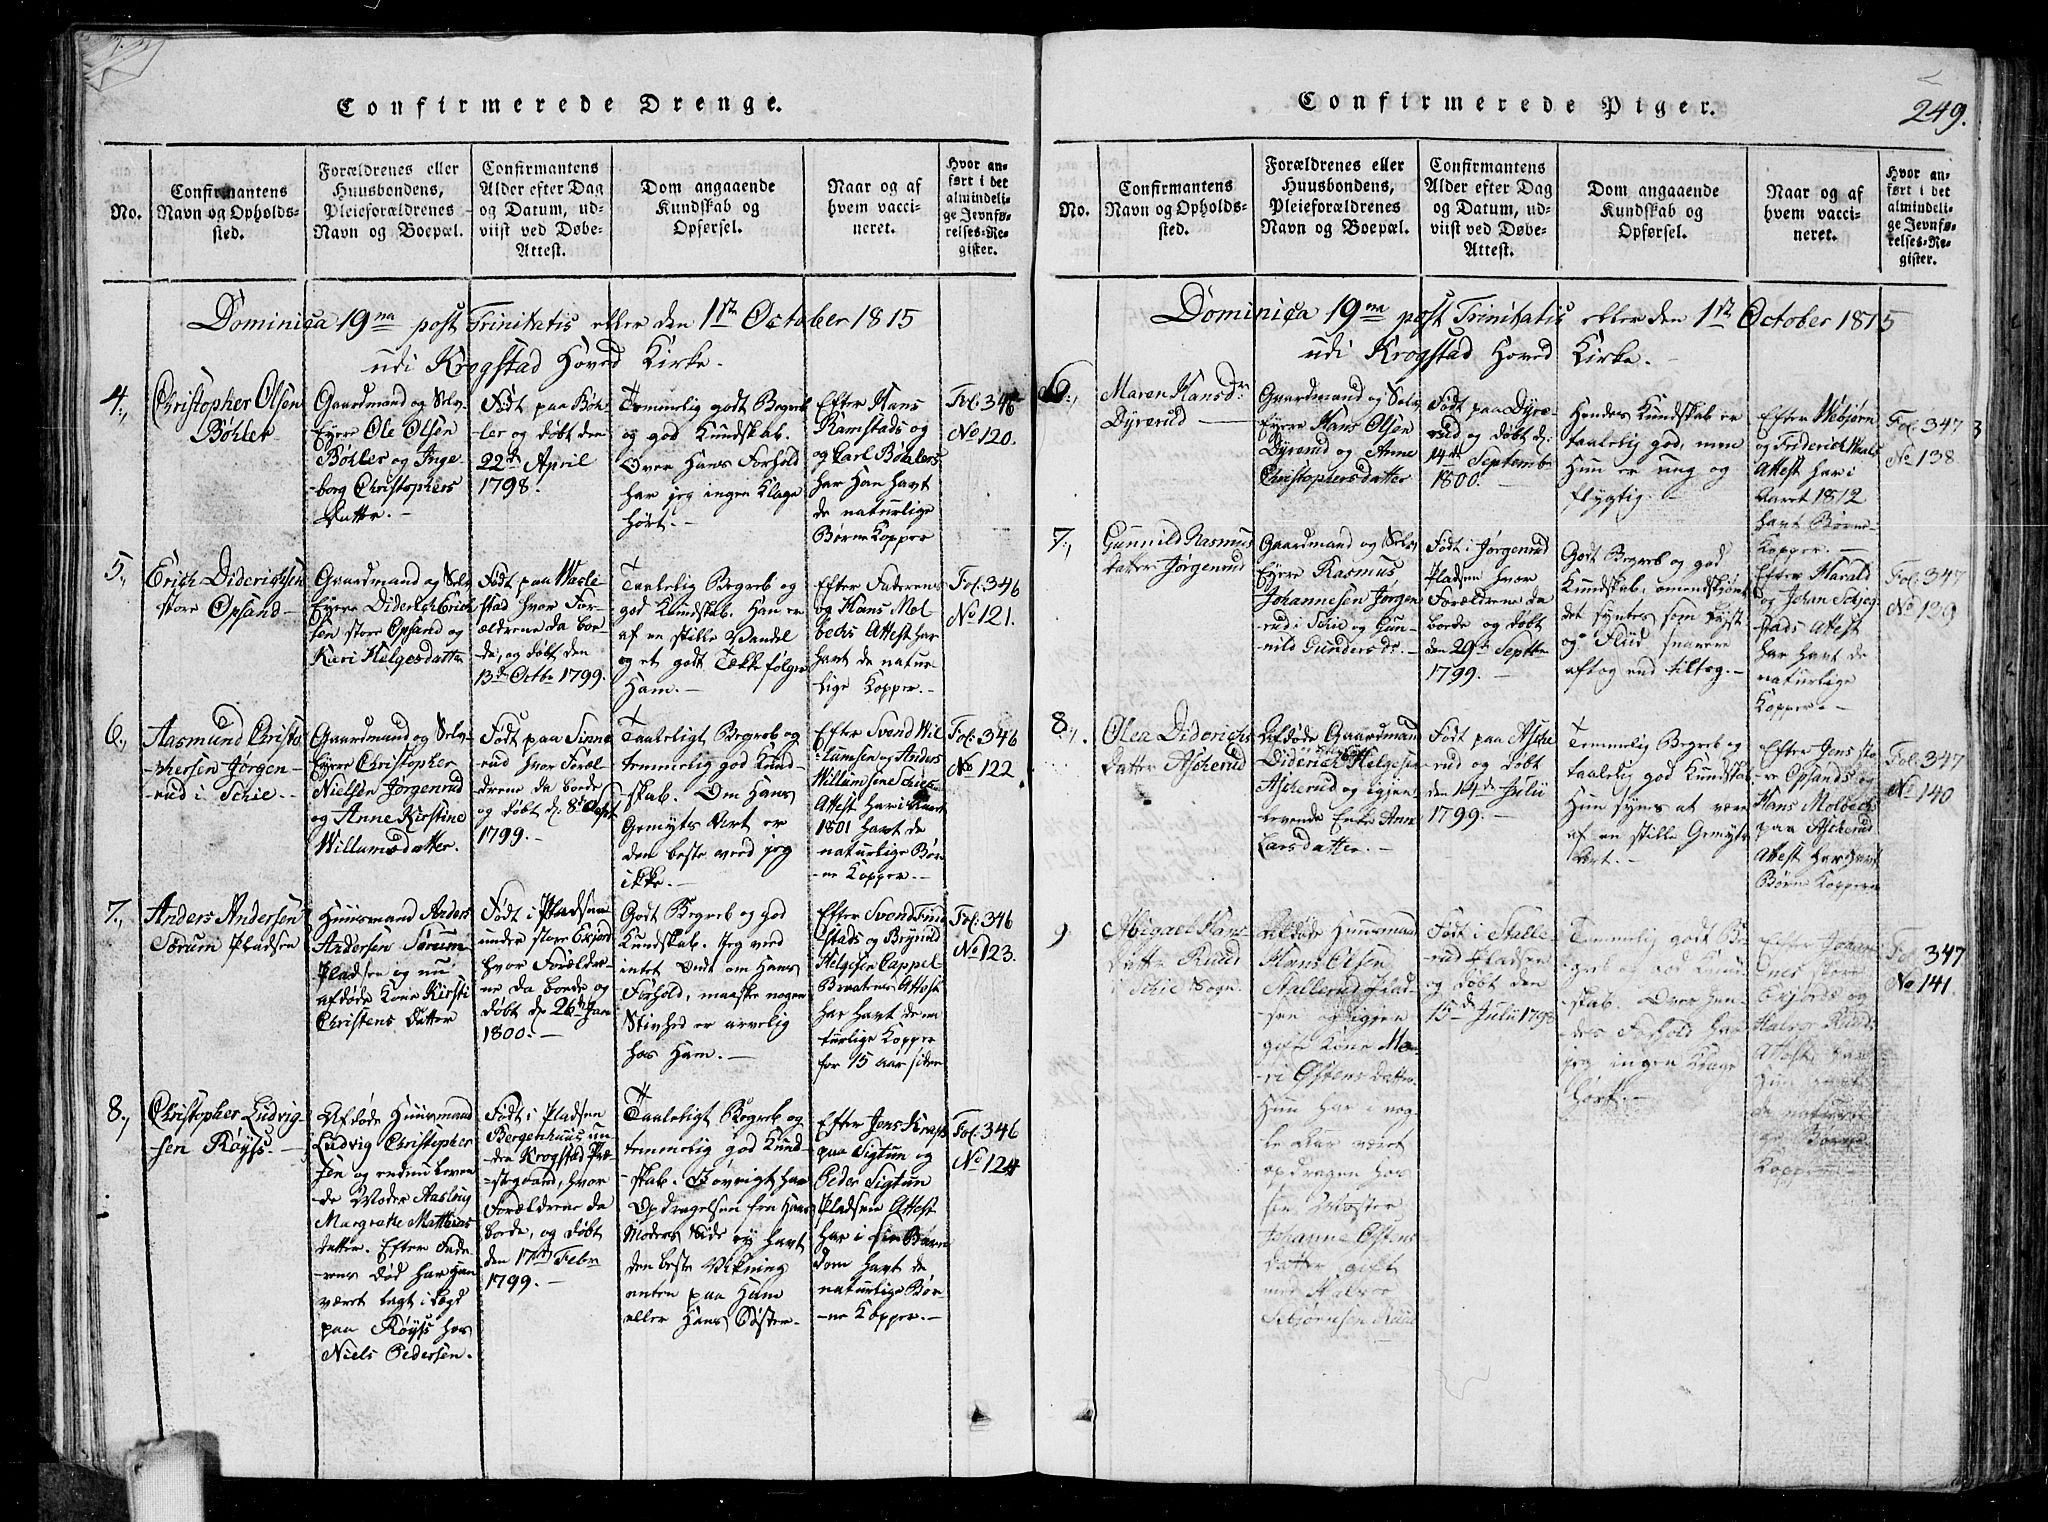 Confirmerede Drenge.
No.
Confirmantens
Navn og Opholds-
sted.
Forældrenes eller
Huusbondens,
Pleieforældrenes
Navn og Boepæl.
Confirmantens
Alder efter Dag
og Datum, ud-
viist ved Døbe-
Attest.
Dom angaaende
Kundskab og
Opførsel.
Naar og af
hvem vacci-
neret.
Hvor an-
ført i det
almindeli-
ge Jevnfø-
relses-Re-
gister.
Dominica 19na post Trinitatis eller den 1ste October 1815
udi Krogstad Hoved Kirke.
4.,
Christopher Olsen
Bøhler
Gaardmand og Selv-
Eyere Ole Olsen
Bøhler og Inge
borg Christophers
Datter.
Født paa Bøh-
ler og døbt den
22de April
1798.
Temmelig godt Begreb
og god Kundskab.
Over Hans Forhold
har jeg ingen Klage
hørt.
Efter Hans
Ramstads og
og Carl Bøhlers
har Han havt
de naturlige
Børne Kopper
Fol: 346
No 120.
5.,
Erich Diderichsen
store Opsand
Gaardmand og Selv-
Eyere Diderich Erich
sen store Opsand og
Kari Helgesdatter
Født paa
stad hvor For-
ældrene da boe-
de, og døbt den
13de Octbr 1799.
Taalelig Begreb og
god Kundskab. Han er
af en stille Vandel
og et godt Tække følger
Ham.
Efter Faderens
og Hans Mol
bechs Attest har
havt de natur
lige Kopper.
Fol: 346
No 121.
6.,
Aasmund Christo
phersen Jørgen-
rud i Schie.
Gaardmand og Selv-
Eyere Christopher
Nielsen Jørgenrud
og Anne Kirstine
Willumsdatter.
Født paa Finne
rud hvor Foræl
drene da boede
og døbt d. 8de Sept
1799.
Taaleligt Begreb og
temmelig god Kund-
skab. Om Hans
Gemyts Art er
den beste veed jeg
ikke.
Efter Svend Wil
lumsen og Anders
Willumsens
Attest har i Aaret
1801 havt de
naturlige Bør-
ne Kopper.
Fol: 346
No 122
7.,
Anders Andersen
Sørum Pladsen
Huusmand Anders
Andersen Sørum
Pladsen og nu
afdøde Kone Kirsti
Christens Datter
Født i Pladsen
under store
hvor Forældre-
ne da boede og
døbt d. 26de Jan
1800.
Godt Begreb og god
Kundskab. Jeg veed
intet Ondt om Hans
Forhold, maaske nogen
Stivhed er arvelig
hos Ham.
Efter Svend
stads og Brynild
Helgesen Cappel-
Braatens Attest
har havt de na
turlige Kopper
for 15 aar siden
Fol: 346
No 123.
8.,
Christopher Ludvig-
sen Røyss.
Afdøde Huusmand
Ludvig Christopher
sen og endnu leven
de Moder Aaslaug
Margrethe Matthias
datter. Efter Fade
rens død har Han
været lagt i Lægd
paa Røyss hos
Niels Pedersen.
Født i Pladsen
Bergenhuus un-
der Krogstad Præ-
stegaard, hvor
Forældrene da
boede, og døbt
den 17de Febr
1799.
Taaleligt Begreb og
temmelig god Kund-
skab. Iøvrigt har
Opdragelsen fra Hans
Moders Side ej havt
den beste Virkning
enten paa Ham
eller Hans Søster.
Efter Jens
paa Sigtun og
Peder Sigtun
Pladsen Attest
har i sin Barn
dom havt de
naturlige Bør-
ne Kopper.
Fol: 346
No 124
Confirmerede Piger.
249.
No.
Confirmantens
Navn og Opholds-
sted.
Forældrenes eller
Huusbondens,
Pleieforældrenes
Navn og Boepæl.
Confirmantens
Alder efter Dag
og Datum, ud-
viist ved Døbe-
Attest.
Dom angaaende
Kundskab og
Opførsel.
Naar og af
hvem vacci-
neret.
Hvor an-
ført i det
almindeli-
ge Jevnfø-
relses-Re-
gister.
Dominica 19na post Trinitatis eller den 1ste October 1815
udi Krogstad Hoved Kirke.
6.,
Maren Hansdr
Dyrerud
Gaardmand og Selv
Eyere Hans Olsen
Dyrerud og Anne
Christophersdatter
Født paa Dyre-
rud og døbt d.
14de Septembr
1800.
Hendes Kundskab er
taalelig god, men
Hun er ung og
flygtig.
Efter Webjørn
og Frederich
Attest har i
Aaret 1812
havt Børne-
Kopper.
Fol: 347
No 138
7.,
Gunnild Rasmus
datter Jørgenrud
Gaardmand og Selv
Eyere Rasmus
Johannesen Jørgen
rud i Schie og Gun-
nild Gundersdr.
Født i Jørgenrud
Pladsen hvor
Forældrene da
boede og døbt
den 29de Septbr
1799.
Godt Begreb og god
Kundskab, omendskjønt
det syntes som Lyst
og Fliid snarere
aftog end tiltog.
Efter Harald
og Johan
stads Attest
har havt de
naturlige
Kopper.
Fol: 347
No 139
8.,
Olea Diderichs
datter Ascherud
Afdøde Gaardmand
Diderich Helgesen
Ascherud og igjen-
levende Enke Anne
Larsdatter.
Født paa Asche
rud og døbt
den 14de Julii
1799.
Temmelig Begreb og
taalelig god Kundskab
Hun synes at være
af en stille Gemyts
Art.
Efter Jens sto
re Opsands og
Hans Molbechs
paa Ascherud
Attest har havt
Børne Kopperne
Fol: 347
No 140
9
Abigael Hans
datter Ruud
i Schie Sogn.
Afdøde Huusmand
Hans Olsen
Stallerud Plad-
sen og igjen
gifte Kone Ma-
ri Østens Datter.
Hun har i nog-
le Aar været
opdragen hos
sin Moster
Johanne Østens
datter gift
med Halvor
Ruud
Født i Stalle-
rud Pladsen
og døbt den
15de Julii 1798
Temmelig godt Be-
greb og god Kund-
skab. Over Hen-
des Forhold har
jeg ingen Klage
hørt.
Efter
store
og
Halvor Ruuds
Attest har
Hun havt
de naturli-
ge Børne
Kopper
Fol: 347
No 141.